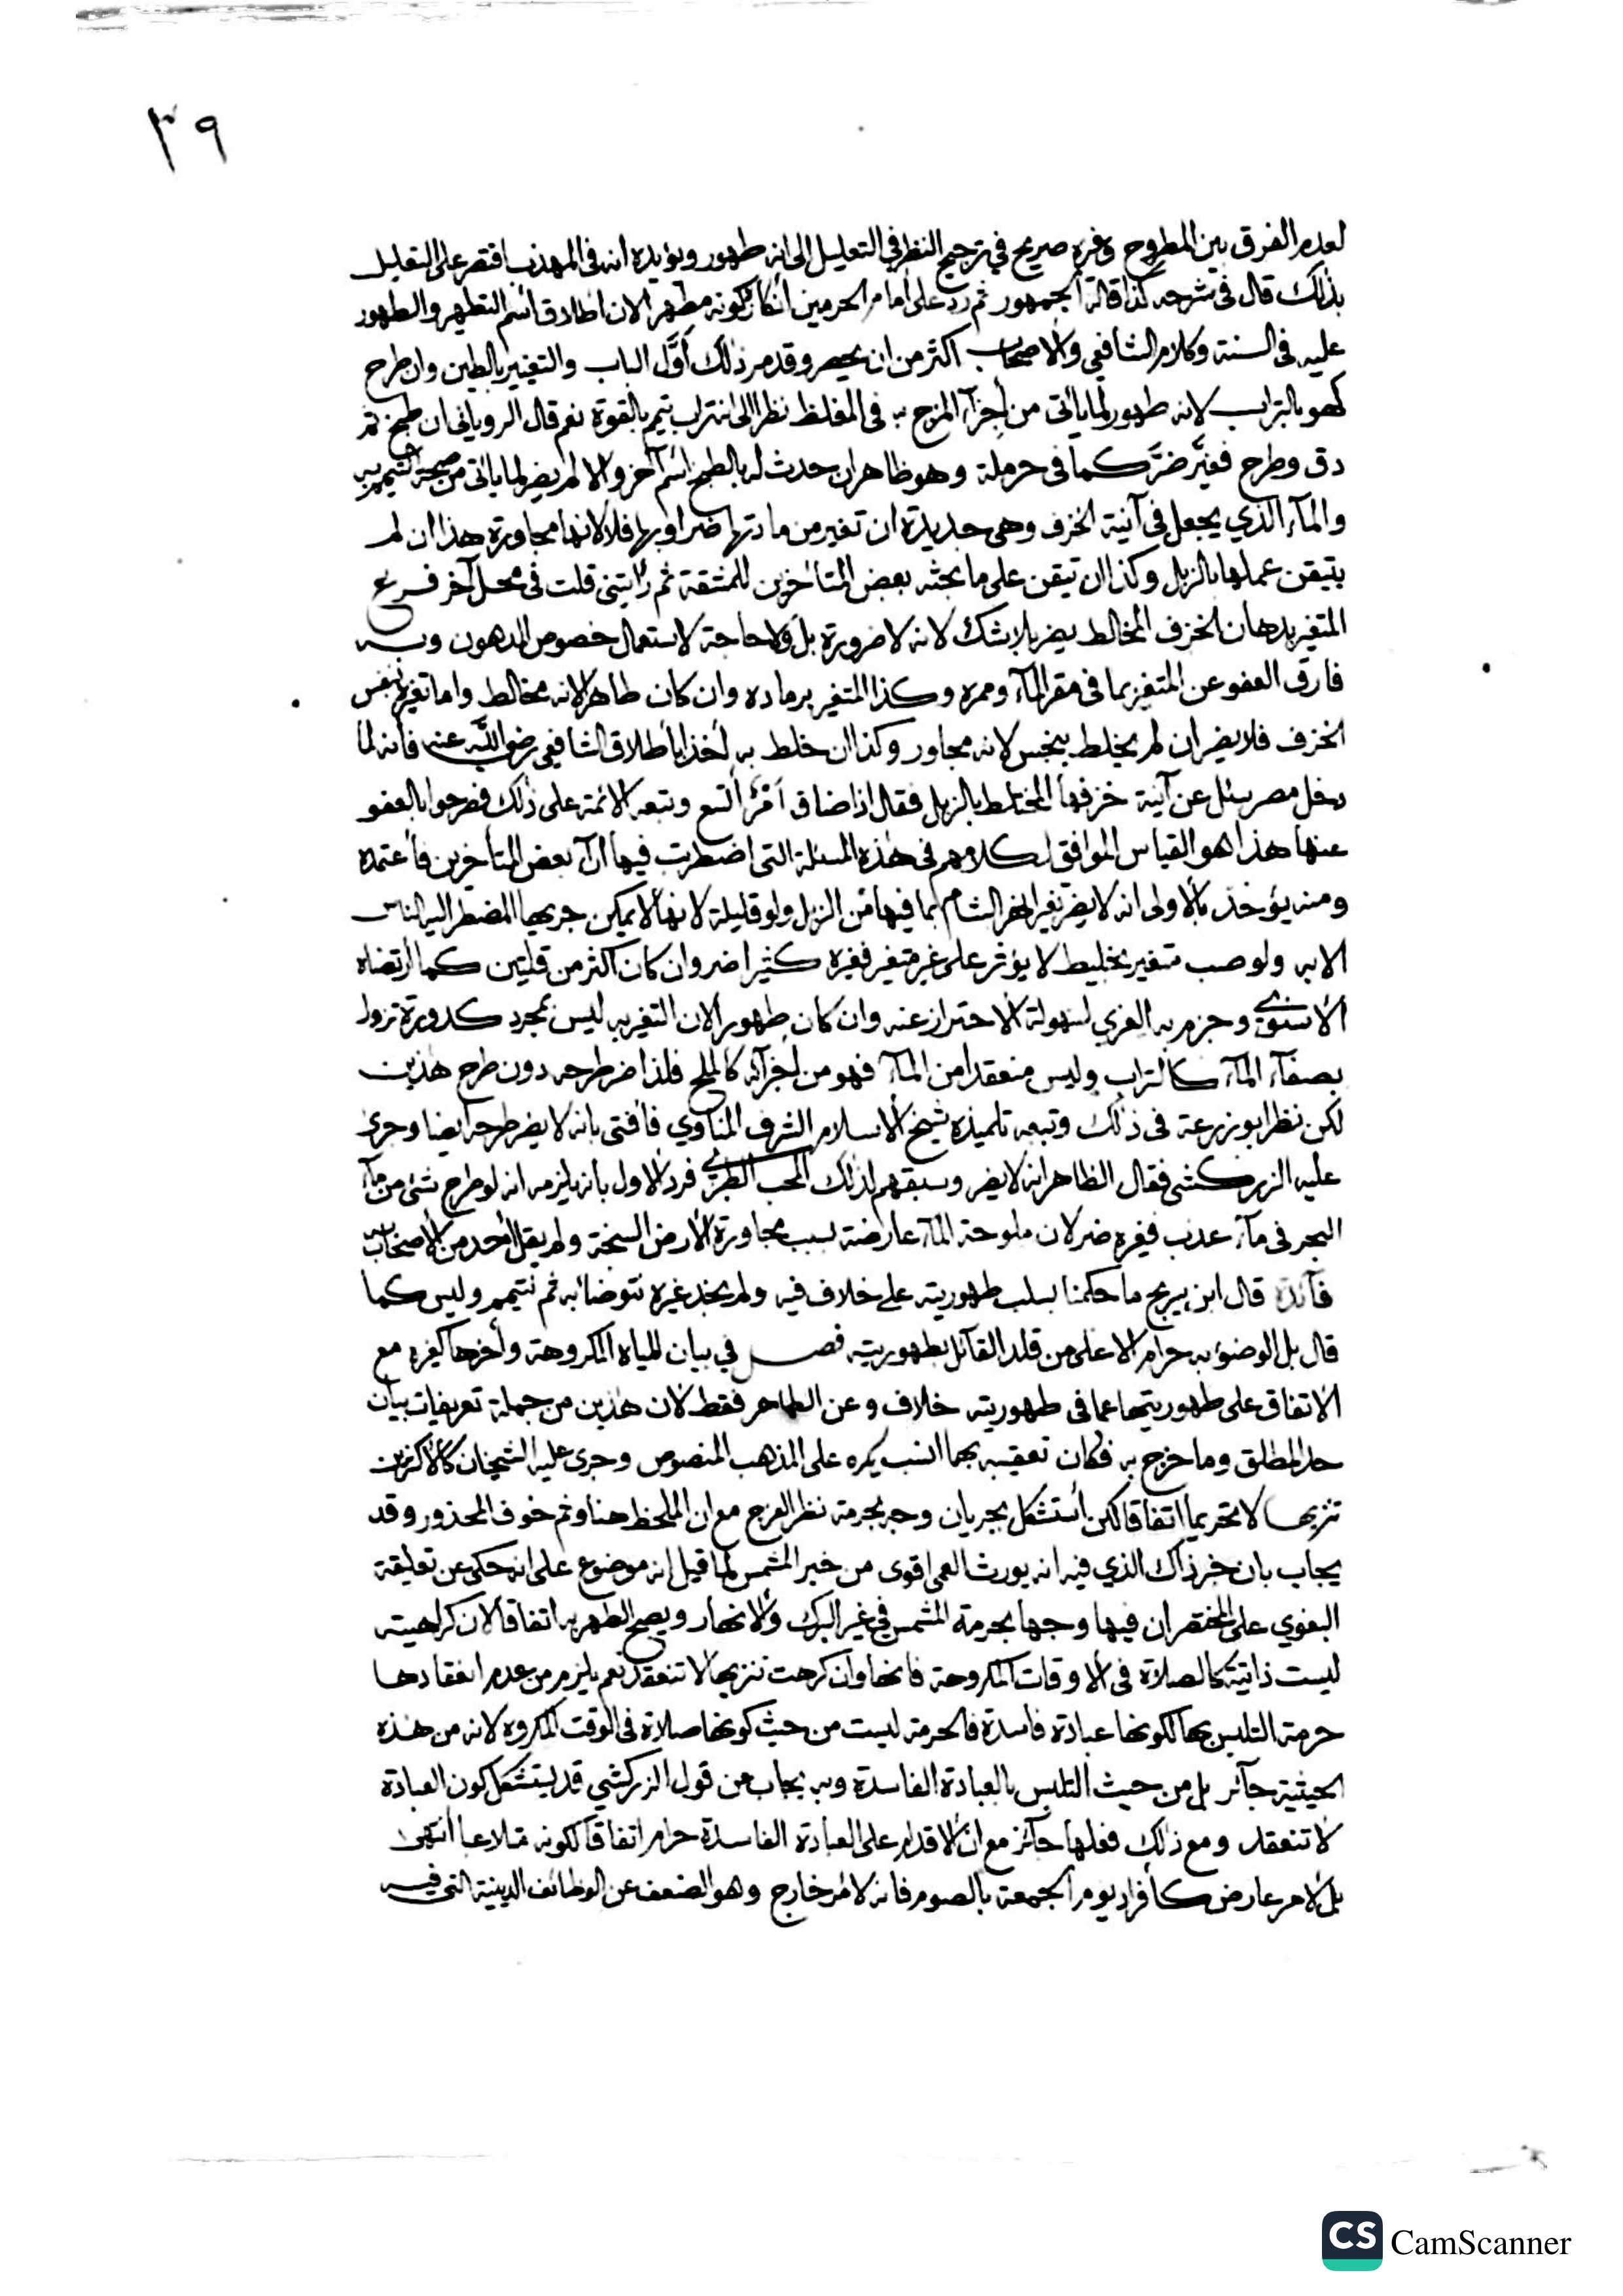 ٣٩
لعدم الفرق بين المطروح وغيره صريح في ترجيح النظر في التعليل الى انه طهور ويؤيده انه في المهذب اقتصر على التعليل
بذلك قال في شرحه كذا قاله الجمهور ثم رد على امام الحرمين انكاره كونه مطهرا لان اطلاق اسم التطهير والطهور
عليه في السنة وكلام الشافعي والاصحاب اكثر من ان يحصر وقدم ذلك أوَّل الباب والتغيير بالطين وان طرح
كهو بالتراب لانه طهور لما يأتي من إجزآء المزج به في المغلظ نظرا الى انه تراب يتيم بالقوة نعم قال الروياني ان طبخ ثم
دق وطرح فغيَّر ضرَّ كما في حرملة وهو ظاهر ان حدث له بالطبخ اسم آخر والا لم يضر لما ياتي من صحة التيمم به
والمآء الذي يجعل في آنية الخزف وهي جديدة ان تغير من مادتها ضر او بها فلا لانها مجاورة هذا ان لم
يتيقن عملها بالزبل وكذا ان تيقن على ما بحثه بعض المتأخرين للمشقة ثم رأيتني قلت في محل آخر فرع
المتغير بدهان الخزف المخالط يضر بلا شك لانه لا ضرورة بل ولا حاجة لاستعمال خصوص المدهون وبه
فارق العفو عن المتغير بما في مقر المآء وممره وكذا المتغير برماده وان كان طاهرا لانه مخالط واما تغيره بنفس
الخزف فلا يضر ان لم يخلط بنجس لانه مجاور وكذا ان خلط به أخذا بأطلاق الشافعي رضي اللّه عنه فأنه لما
دخل مصر سئل عن آنية خزفها المختلط بالزبل فقال اذا ضاق أمْرٌ اتسع وتبعه الائمة على ذلك فصرحوا بالعفو
عنها هذا هو القياس الموافق لكلامهم في هذه المسئلة التي اضطربت فيها ارآء بعض المتأخرين فأعتمده
ومنه يؤخذ بالأولى انه لا يضر تغير انهر الشام بما فيها من الزبل ولو قليلة لانها لا يمكن جريها المضطر اليه الناس
الا به ولو صب متغير بخليط لا يؤثر على غير متغير فغيره كثيرا ضر وان كان اكثر من قلتين كما ارتضاه
الأسنوي وجزم به الغزي لسهولة الاحتراز عنه وان كان طهورا لان التغير به ليس بمجرد كدورة تزول
بصفآء المآء كالتراب وليس منعقدا من المآء فهو من اجزآئه كالملح فلذا ضر طرحه دون طرح هذين
لكن نظر ابو زرعة في ذلك وتبعه تلميذه شيخ الاسلام الشرف المناوي فأفتى بانه لا يضر طرحه ايضا وجرى
عليه الزركشي فقال الظاهر انه لا يضر وسبقهم لذلك المحب الطبري فرد الاول بانه يلزمه انه لو طرح شئ من مآء
البحر في مآء عذب فغيره ضر لان ملوحة المآء عارضة بسبب مجاورة الأرض السبخة ولم يقل احد من الأصحاب
فآئدة قال ابن سريج ما حكمنا بسلب طهوريته على خلاف فيه ولم يجد غيره نتوضأ به ثم نتيمم وليس كما
قال بل الوضوء به حرام الا على من قلد القآئل بطهوريته فصل في بيان المياه المكروهة وأخرها كغيره مع
الاتفاق على طهوريتها عما في طهوريته خلاف وعن الطاهر فقط لان هذين من جملة تعريفات بيان
حد المطلق وما خرج به فكان تعقيبه بهما انسب يكره على المذهب المنصوص وجرى عليه الشيخان كالاكثرين
تنزيها لا تحريما اتفاقا لكن أستشكل بجريان وجه بحرمة نظر الفرج مع ان الملحظ هنا وثم خوف المحذور وقد
يجاب بان خبر ذاك الذي فيه انه يورث العمى اقوى من خبر المشمس لما قيل انه موضوع على انه حكى عن تعليقة
البغوي على المختصر ان فيها وجها بحرمة المشمس في غير البرك والانهار ويصح الطهر به اتفاقا لان كراهيته
ليست ذاتية كالصلاة في الأوقات المكروهة فانها وان كرهت تنزيها لا تنعقد نعم يلزم من عدم انعقادها
حرمة التلبس بها لكونها عبادة فاسدة فالحرمة ليست من حيث كونها صلاة في الوقت المكروه لانه من هذه
الحيثية جآئز بل من حيث التلبس بالعبادة الفاسدة وبه يجاب عن قول الزركشي قد يستشكل كون العبادة
لا تنعقد ومع ذلك فعلها جآئز مع ان الاقدام على العبادة الفاسدة حرام اتفاقا لكونه متلاعبا أنتهى
بل لأمر عارض كأفراد يوم الجمعة بالصوم فانه لأمر خارج وهو الضعف عن الوظائف الدينية التي فيه
CS CamScanner